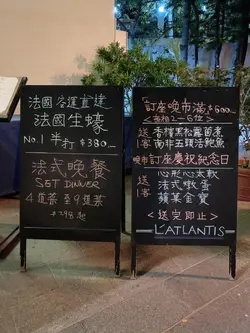 法國空運直達
法國生蠔
No.1 半打 $380
法式晚餐
SET DINNER
4道菜至9道菜
$298起
訂座晚市滿$600
<每檯2-6位>
送香檳黑松露苗煮
1客南非五頭活鮑魚
晚市訂座慶祝紀念日
送心形心太軟
1法式燉蛋
客蘋果金寶
<送完即止>
L'ATLANTIS